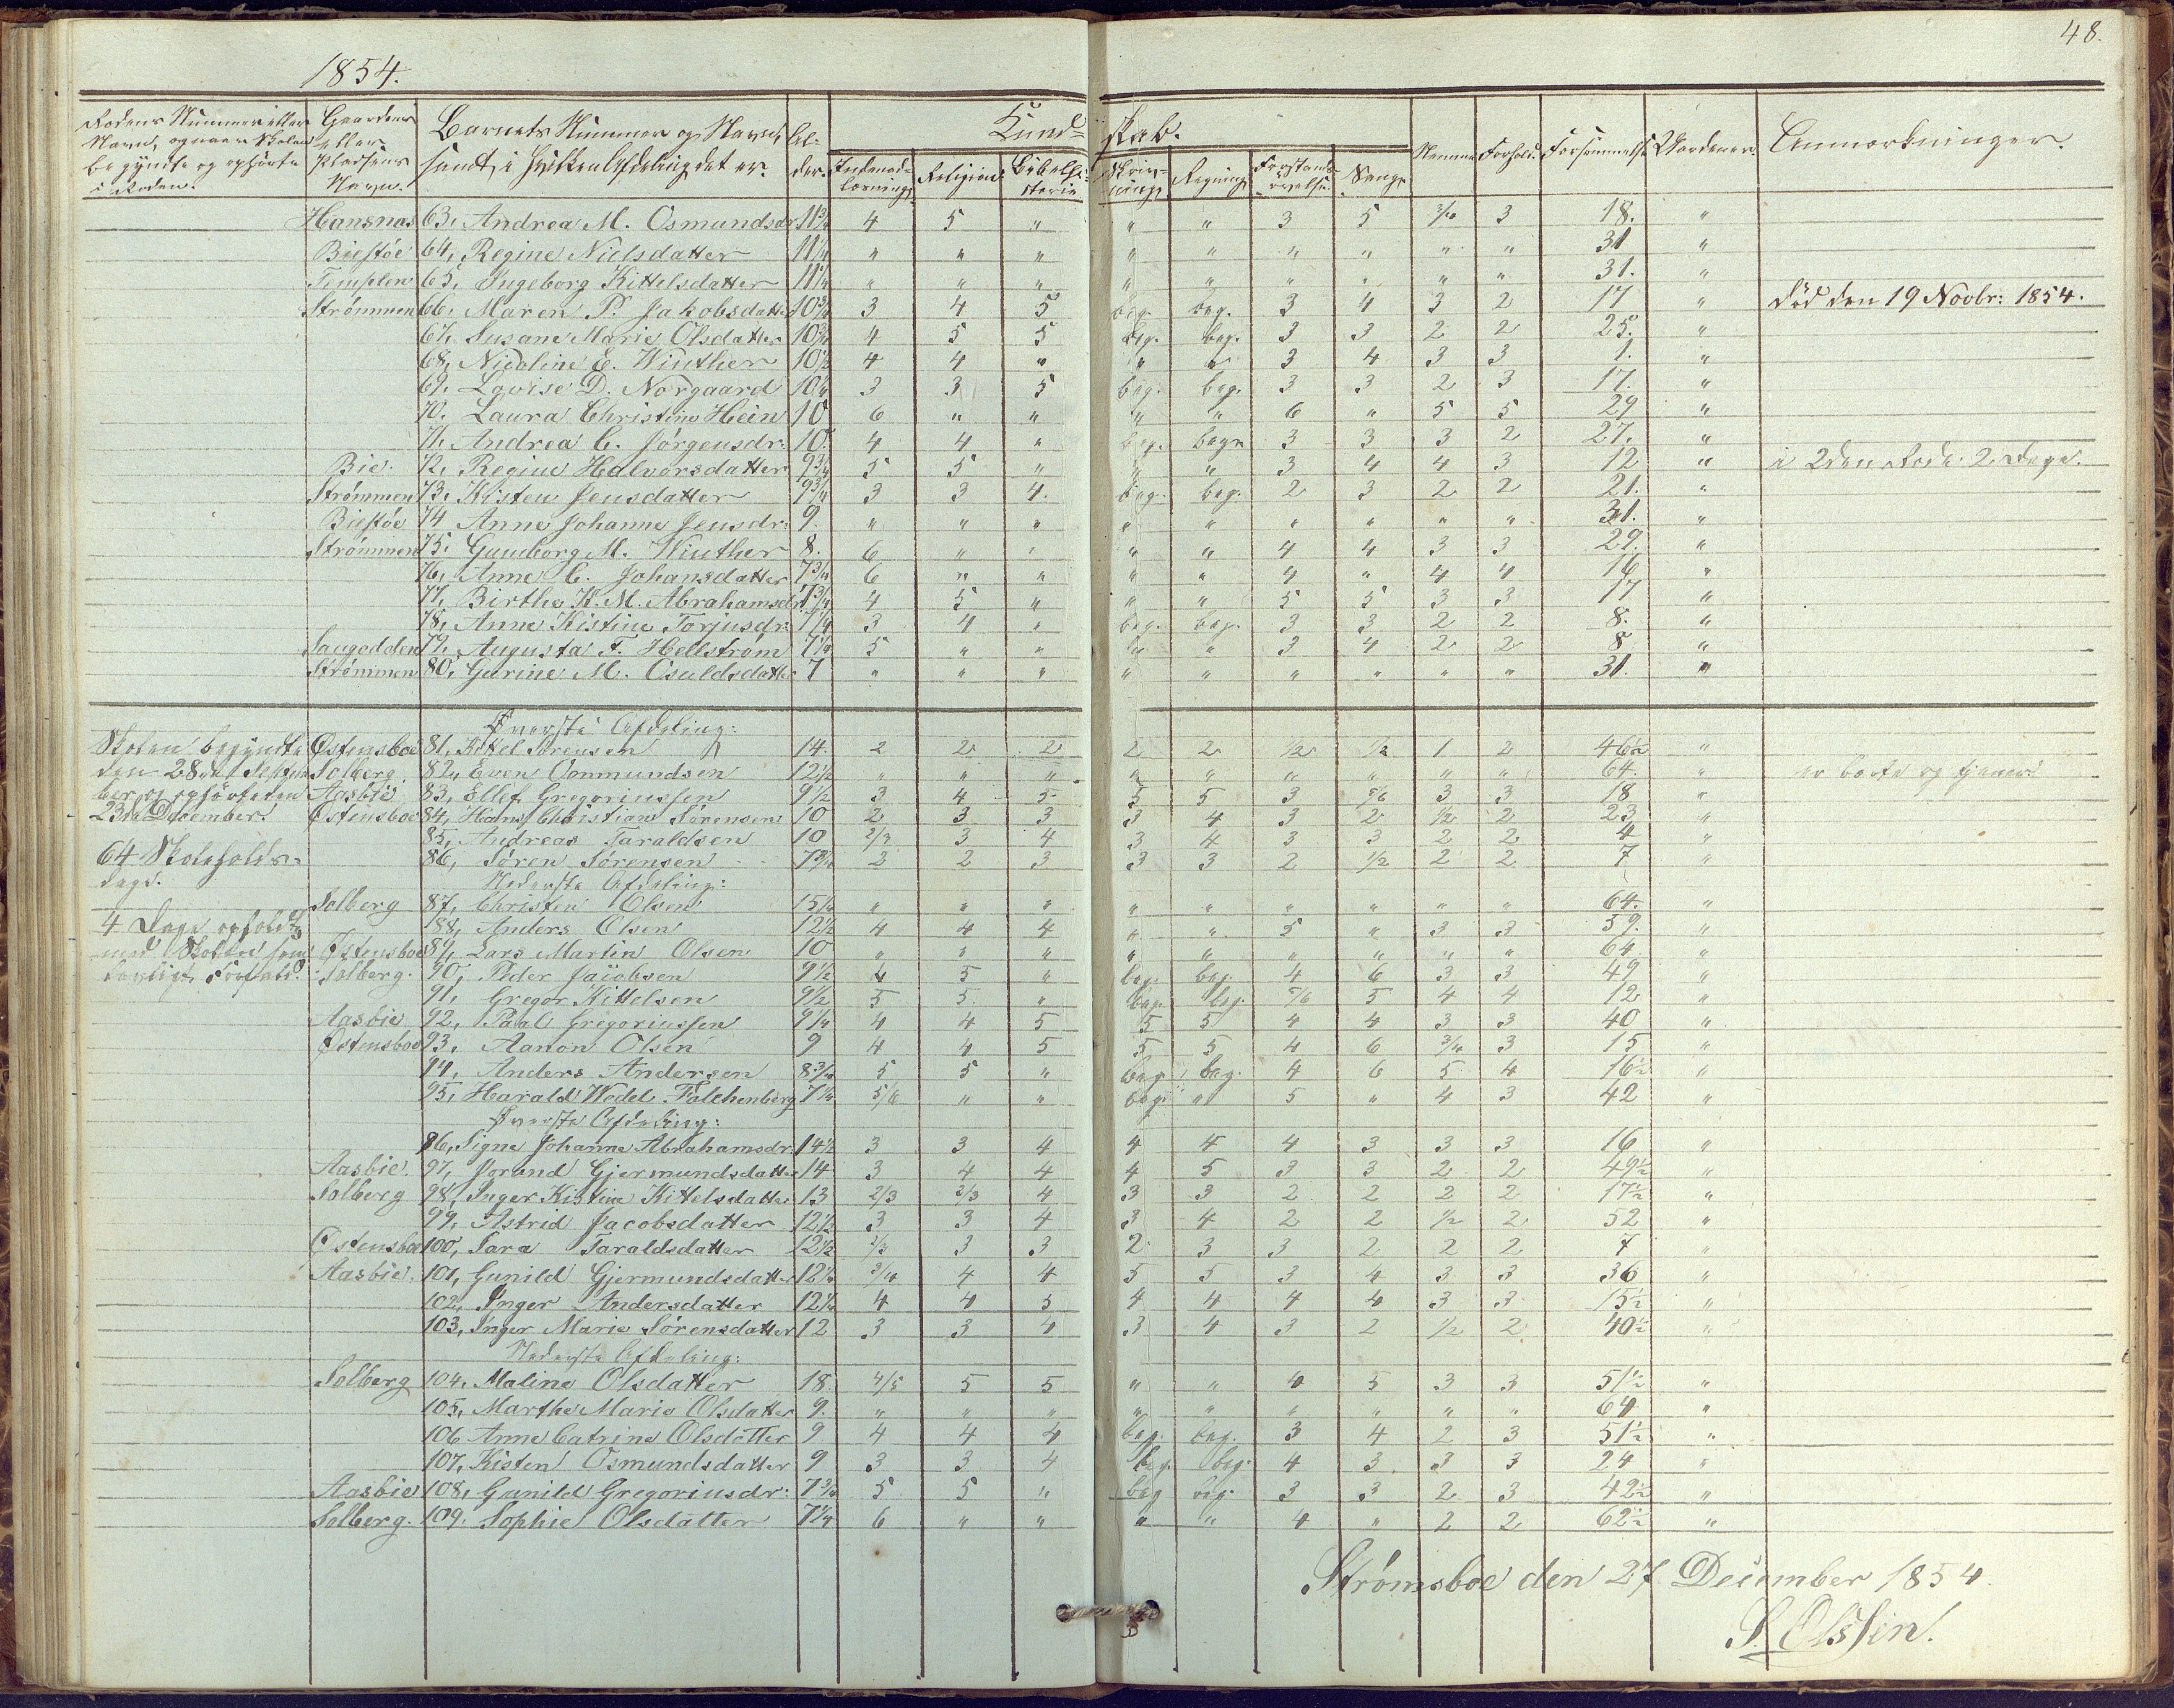 48.
1854.
Rodens Nummer eller Navn, og naar Skolen begyndte og ophørte i Roden.
Gaardens eller Pladsens Navn.
Barnets Nummer og Navn, samt i hvilken Afdeling det er.
Alder.
Kundskab.
Indenad-læsning
Religion
Bibelhistorie
Skrivning
Regning
Forstands-øvelse
Sang
Nemme
Forhold.
Forsømmelse
Anmærkninger.
Hansnas 63, Andrea M. Osmundsdr 11¾ 4 5 " " " 3 5 3 18. "
Biestöe 64, Regine Nielsdatter 11¼ " " " " " " " " " 31 "
Templen 65, Ingeborg Kittelsdatter 11¼ " " " " " " " " " 31. "
Strømmen 66, Maren P. Jakobsdatter 10¾ 3 4 5 beg. beg. 3 4 3 2 17 " död den 19 Novbr: 1854.
67, Susane Marie Olsdatter 10¾ 4 5 5 beg. beg. 3 3 2 2 25. "
68, Nicoline E. Winther 10½ 4 4 " " " 3 4 3 3 1. "
69, Lovise D. Norgaard 10¼ 3 3 5 beg. beg. 3 3 2 3 17. "
70. Laura Christine Hein 10 6 " " " " 6 " 5 5 29 "
71, Andrea C. Jörgensdr. 10. 4 4 " beg. begr 3 3 3 2 27. "
Bie. 72, Regine Halvorsdatter 9¾ 5 5 " " " 3 4 4 3 12 " i 2den Rode 2 Dage.
Strømmen 73, Kisten Jensdatter 9¾ 3 3 4. beg. beg. 2 3 2 2 21. "
Biestöe 74 Anne Johanne Jensdr: 9. " " " " " " " " " 31. "
Strømmen 75. Gunborg M. Winther 8. 6 " " " " 4 4 3 3 29. "
76, Anne C. Johansdatter 7¾ 6 " " " " 4 " 4 4 16 "
77, Birthe K. M. Abrahamsdr 7¾ 4 5 " " " 5 5 3 3 17 "
78, Anne Kistine Torjusdr: 7¼ 3 4 " beg. beg. 3 3 2 2 8. "
Saugodden 79, Augusta F. Hellström 7¼ 5 " " " " 3 4 2 2 8 "
Strømmen 80, Gurine M. Osuldsdatter 7 " " " " " " " " " 31. "
Øverste Afdeling:
Skolen begyndte Østensboe 81, Kittel Sörensen 14. 2 2 2 2 2 ½ ½ 1 2 46½ "
den 28de Septem Solberg. 82, Even Oonmundsen 12½ " " " " " " " " " 64. " er borte og tjener
ber og ophörte den Aasbie 83, Ellef Gregoriussen 9½ 3 4 5 5 5 3 5/6 3 3 18 "
23de December. Østensboe 84, Hans Christian Sörensen 10 2 3 3 3 4 3 2 ½ 2 23 "
85, Andreas Taraldsen 10 2/3 3 4 3 4 3 3 2 2 4 "
64 Skoleholds- 86, Sören Sörensen 7¾ 2 2 3 3 3 2 ½ 2 2 7 "
dage. Nederste Afdeling:
Solberg 87, Christen Olsen 15¼ " " " " " " " " " 64. "
4 Dage opholdt 88, Anders Olsen 12½ 4 4 4 " " 5 " 3 3 59. "
med Skolen som Østensboe 89, Lars Martin Olsen 10 " " " " " " " " " 64 "
Solberg. 90, Peder Jacobsen 9½ 4 5 " beg. beg. 4 6 3 3 49 "
91, Gregor Kittelsen 9½ 5 5 " beg. beg. 5/6 5 4 4 12 "
Aasbie 92, Paal Gregoriussen 9¼ 4 4 5 5 5 4 4 3 3 40 "
Østensboe 93, Aanon Olsen 9 4 4 5 5 5 4 6 3/4 3 15 "
94, Anders Andersen 8¾ 5 5 " beg. beg. 4 6 5 4 16½ "
95, Harald Wedel Falchenberg 7¼ 5/6 " " beg. " 5 " 4 3 42 "
Øverste Afdeling:
86, Signe Johanne Abrahamsdr. 14½ 3 3 4 4 4 4 3 3 3 16 "
Aasbie. 97, Jorand Gjermundsdatter 14 3 4 4 4 5 3 3 2 2 49½ "
Solberg 98, Inger Kistine Kittelsdatter 13 2/3 2/3 4 3 3 2 2 2 2 17½ "
99, Astrid Jacobsdatter 12½ 3 3 4 3 4 2 2 ½ 2 52 "
Østensboe 100, Sara Taraldsdatter 12½ 2/3 3 3 2 3 3 2 2 2 7 "
Aasbie. 101, Gunild Gjermundsdatter 12¼ 3/4 4 4 5 5 3 4 3 3 36 "
102, Inger Andersdatter 12¼ 4 4 5 4 4 4 4 3 3 15½ "
103, Inger Marie Sörensdatter 12 3 3 4 3 4 3 2 ½ 2 40½ "
Nederste Afdeling:
Solberg 104, Maline Olsdatter 18. 4/5 5 5 " " 4 5 3 3 51½ "
105, Marthe Marie Olsdatter 9. " " " " " " " " " 64 "
106 Anne Catrine Olsdatter 9 4 4 4 beg. beg. 3 4 2 3 51½ "
107, Kisten Osmundsdatter 9 3 3 4 beg. beg. 4 3 3 3 24 "
Aasbie 108, Gunild Gregoriusdr: 7¾ 5 5 " beg beg. 3 3 2 3 42½ "
Solberg. 109. Sophie Olsdatter 7¼ 6 " " " " 4 " 2 2 62½ "
Strømsboe den 27 December 1854.
S. Olssen.